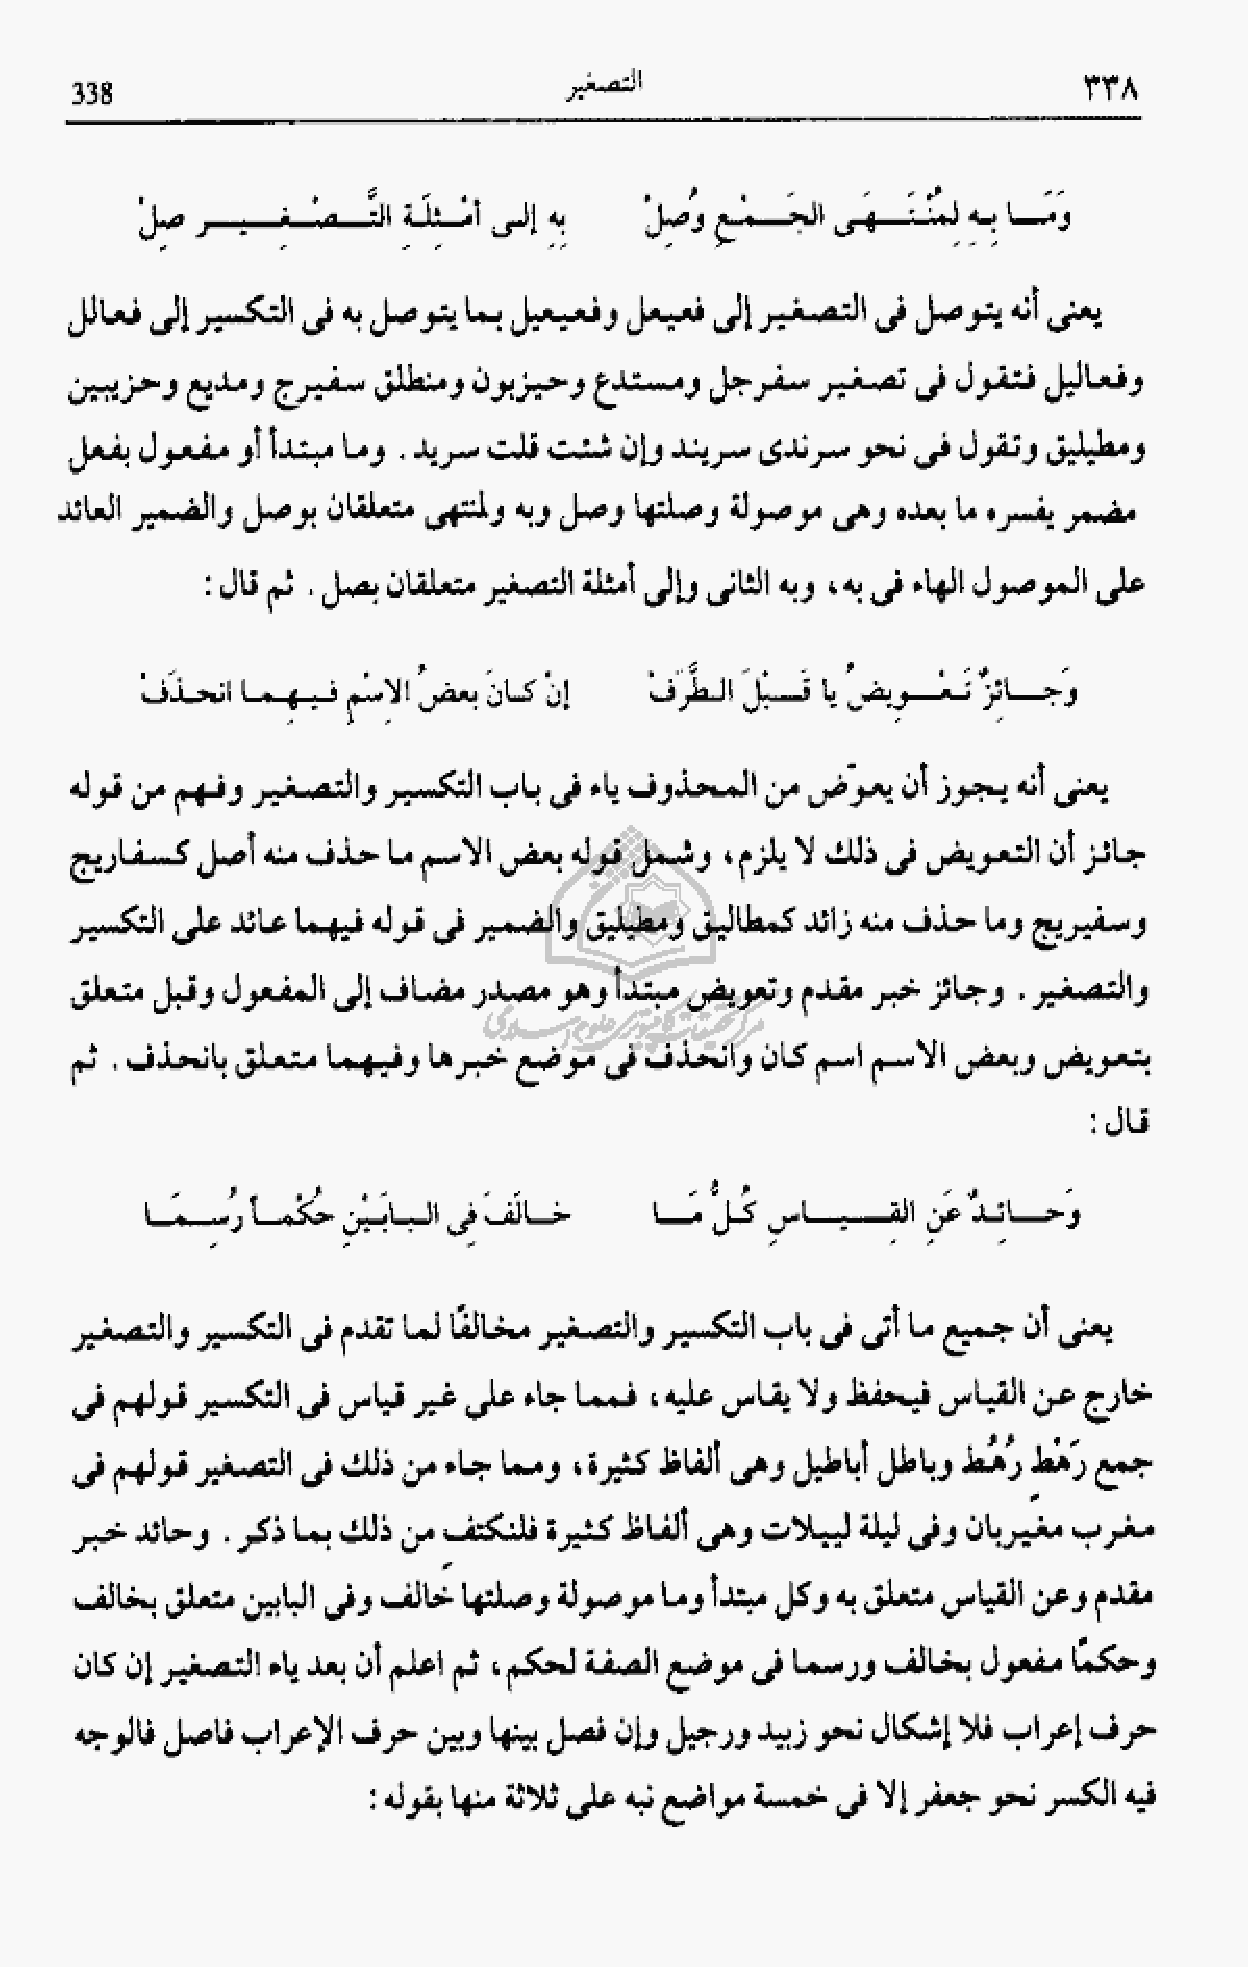 ٣٣٨ التصغير 338
وَمَا بِهِ لِمُنْتَهَى الجَمْعِ وُصِلْ بِهِ إلى أمْثِلَةِ التَّصْغِيرِ صِلْ
يعنى أنه يتوصل فى التصغير إلى فعيعل وفعيعيل بما يتوصل به فى التكسير إلى فعالل
وفعاليل فتقول فى تصغير سفرجل ومستدع وحيزبون ومنطلق سفيرج ومديع وحزيبين
ومطيليق وتقول فى نحو سرندى سريند وإن شئت قلت سريد . وما مبتدأ أو مفعول بفعل
مضمر يفسره ما بعده وهى موصولة وصلتها وصل وبه ولمنتهى متعلقان بوصل والضمير العائد
على الموصول الهاء فى به ، وبه الثانى وإلى أمثلة التصغير متعلقان بصل . ثم قال :
وَجائزٌ تَعْويضُ يا قَبْلَ الطَّرَفْ إنْ كانَ بعضُ الاِسْمِ فيهِما انحذَفْ
يعنى أنه يجوز أن يعوّض من المحذوف ياء فى باب التكسير والتصغير وفهم من قوله
جائز أن التعويض فى ذلك لا يلزم ، وشمل قوله بعض الاسم ما حذف منه أصل كسفاريج
وسفيريج وما حذف منه زائد كمطاليق ومطيليق والضمير فى قوله فيهما عائد على التكسير
والتصغير . وجائز خبر مقدم وتعويض مبتدأ وهو مصدر مضاف إلى المفعول وقبل متعلق
بتعويض وبعض الاسم اسم كان وانحذف فى موضع خبرها وفيهما متعلق بانحذف . ثم
قال :
وَحائِدٌ عَنِ القِياسِ كُلُّ مَا خالَفَ فِى البابَيْنِ حُكْماً رُسِمَا
يعنى أن جميع ما أتى فى باب التكسير والتصغير مخالفًا لما تقدم فى التكسير والتصغير
خارج عن القياس فيحفظ ولا يقاس عليه ، فمما جاء على غير قياس فى التكسير قولهم فى
جمع رَهْطٍ رُهُط وباطل أباطيل وهى ألفاظ كثيرة ، ومما جاء من ذلك فى التصغير قولهم فى
مغرب مغيربان وفى ليلة لييلات وهى ألفاظ كثيرة فلنكتفِ من ذلك بما ذكر . وحائد خبر
مقدم وعن القياس متعلق به وكل مبتدأ وما موصولة وصلتها خالف وفى البابين متعلق بخالف
وحكمًا مفعول بخالف ورسما فى موضع الصفة لحكم ، ثم اعلم أن بعد ياء التصغير إن كان
حرف إعراب فلا إشكال نحو زبيد ورجيل وإن فصل بينها وبين حرف الإعراب فاصل فالوجه
فيه الكسر نحو جعفر إلا فى خمسة مواضع نبه على ثلاثة منها بقوله :
مركز تحقيقات كامپيوترى علوم اسلامى